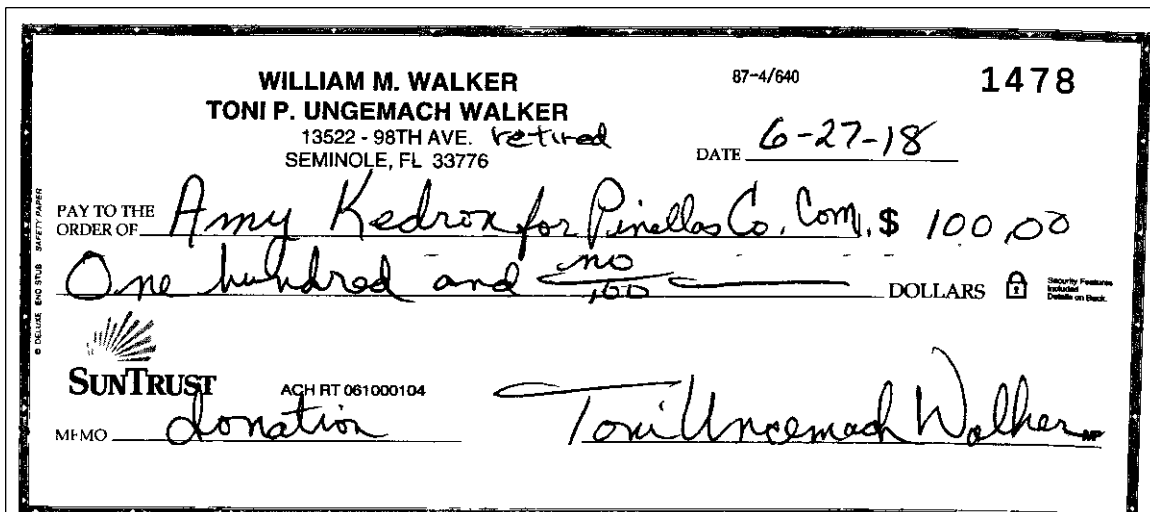 WILLIAM M. WALKER
87-4/640
1478
TONI P. UNGEMACH WALKER
13522 - 98TH AVE. retired
SEMINOLE, FL 33776
DATE 6-27-18
PAY TO THE ORDER OF Amy Kedron for Pinellas Co. Com. $ 100.00
One hundred and no/100 DOLLARS
Security Features
Included
Details on Back.
© DELUXE END STUB SAFETY PAPER
SUNTRUST
ACH RT 061000104
MEMO donation
Toni Ungemach Walker MP